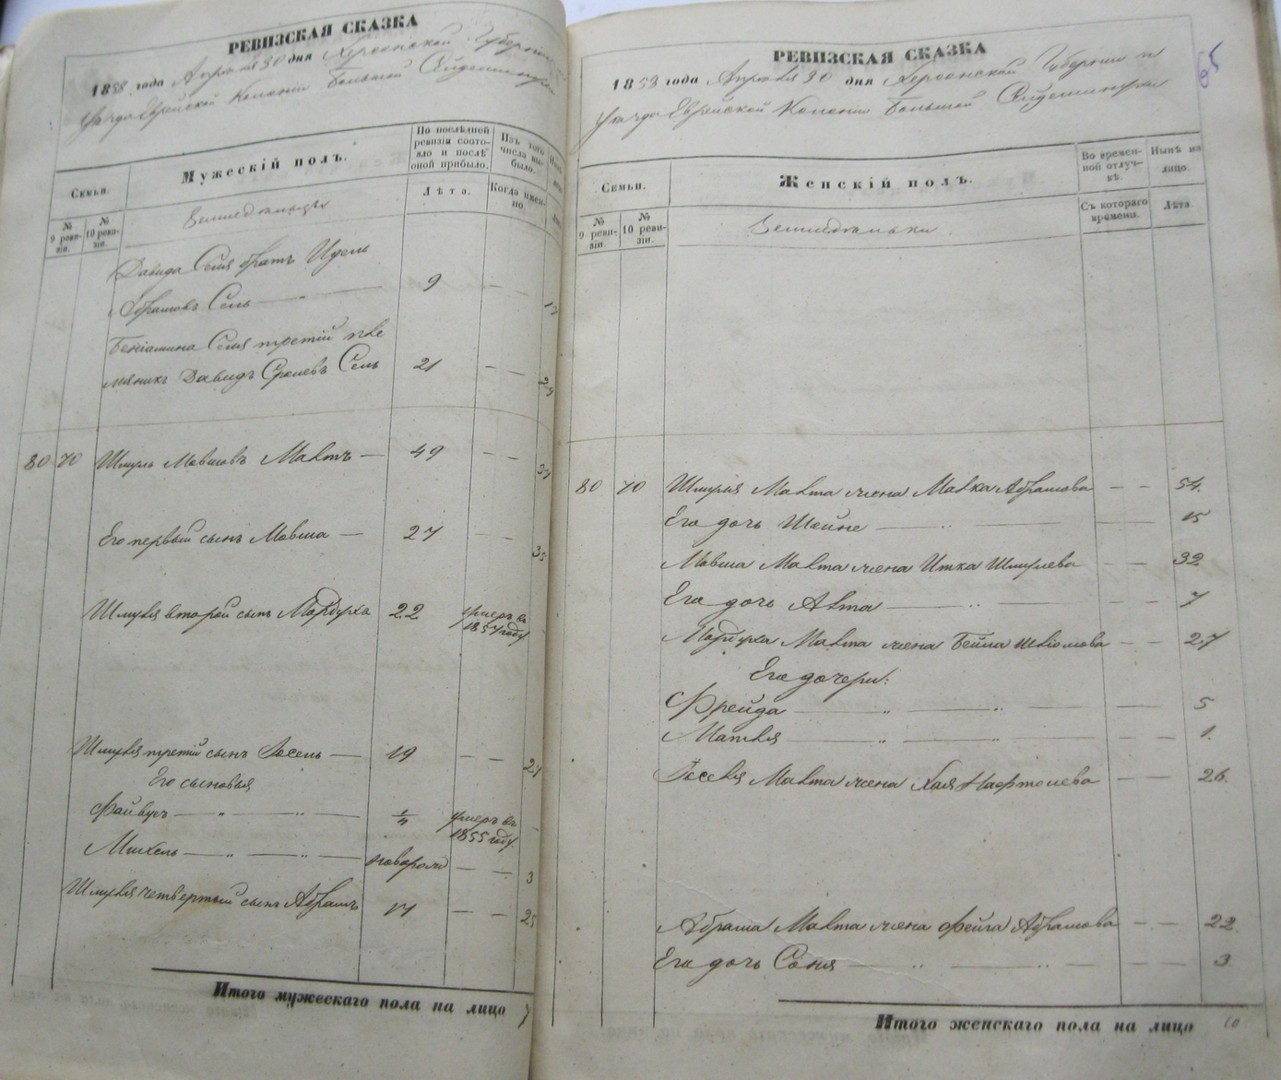 РЕВИЗСКАЯ СКАЗКА
1858 года Апреля 30 дня Херсонской Губернии
уезда Еврейской Колонии Большой Сейдеминухи
Семьи.
Мужескій полъ.
По послѣдней ревизіи состояло и послѣ оной прибыло.
Изъ того числа выбыло.
№ 9 ревизіи.
№ 10 ревизіи.
Лѣта.
Когда именно.
Земледѣльцы
Давида Селя братъ Идель
Абрамовъ Сель 9 — — 17
Беніамина Селя третій племяникъ Давидъ Сролевъ Сель 21 — — 29
80 70 Шмуль Мовшовъ Мальтъ — 49 — — 57
Его первый сынъ Мовша — 27 — — 35
Шмуля второй сынъ Мордуха 22 умеръ въ 1857 году
Шмуля третій сынъ Іосель — 19 — — 27
Его сыновья
Файвушъ — " — " — умеръ въ 1855 году
Михель — " — " — новорожд — — 3
Шмуля четвертый сынъ Абрамъ 17 — — 25
Итого мужескаго пола на лицо 7
65
РЕВИЗСКАЯ СКАЗКА
1858 года Апреля 30 дня Херсонской Губерніи и
уезда Еврейской Колоніи Большой Сейдеминухи
Семьи.
Женскій полъ.
Во временной отлучкѣ.
Нынѣ на лицо.
№ 9 ревизіи.
№ 10 ревизіи.
Съ котораго времени.
Лѣта.
Земледѣльки
80 70 Шмуля Мальта жена Малка Абрамова — — 54.
Его дочь Шейне — " — 15
Мовша Мальта жена Итка Шмулева — — 32
Его дочь Алта — " — 7
Мордуха Мальта жена Бейла — — 27
Его дочери:
Фрейда — " — " — 5
Матля " " 1.
Іоселя Мальта жена Хая Нафтолева — — 26.
Абрама Мальта жена Фейга Абрамова — — 22.
Его дочь Соня — " — " — 3
Итого женскаго пола на лицо 10